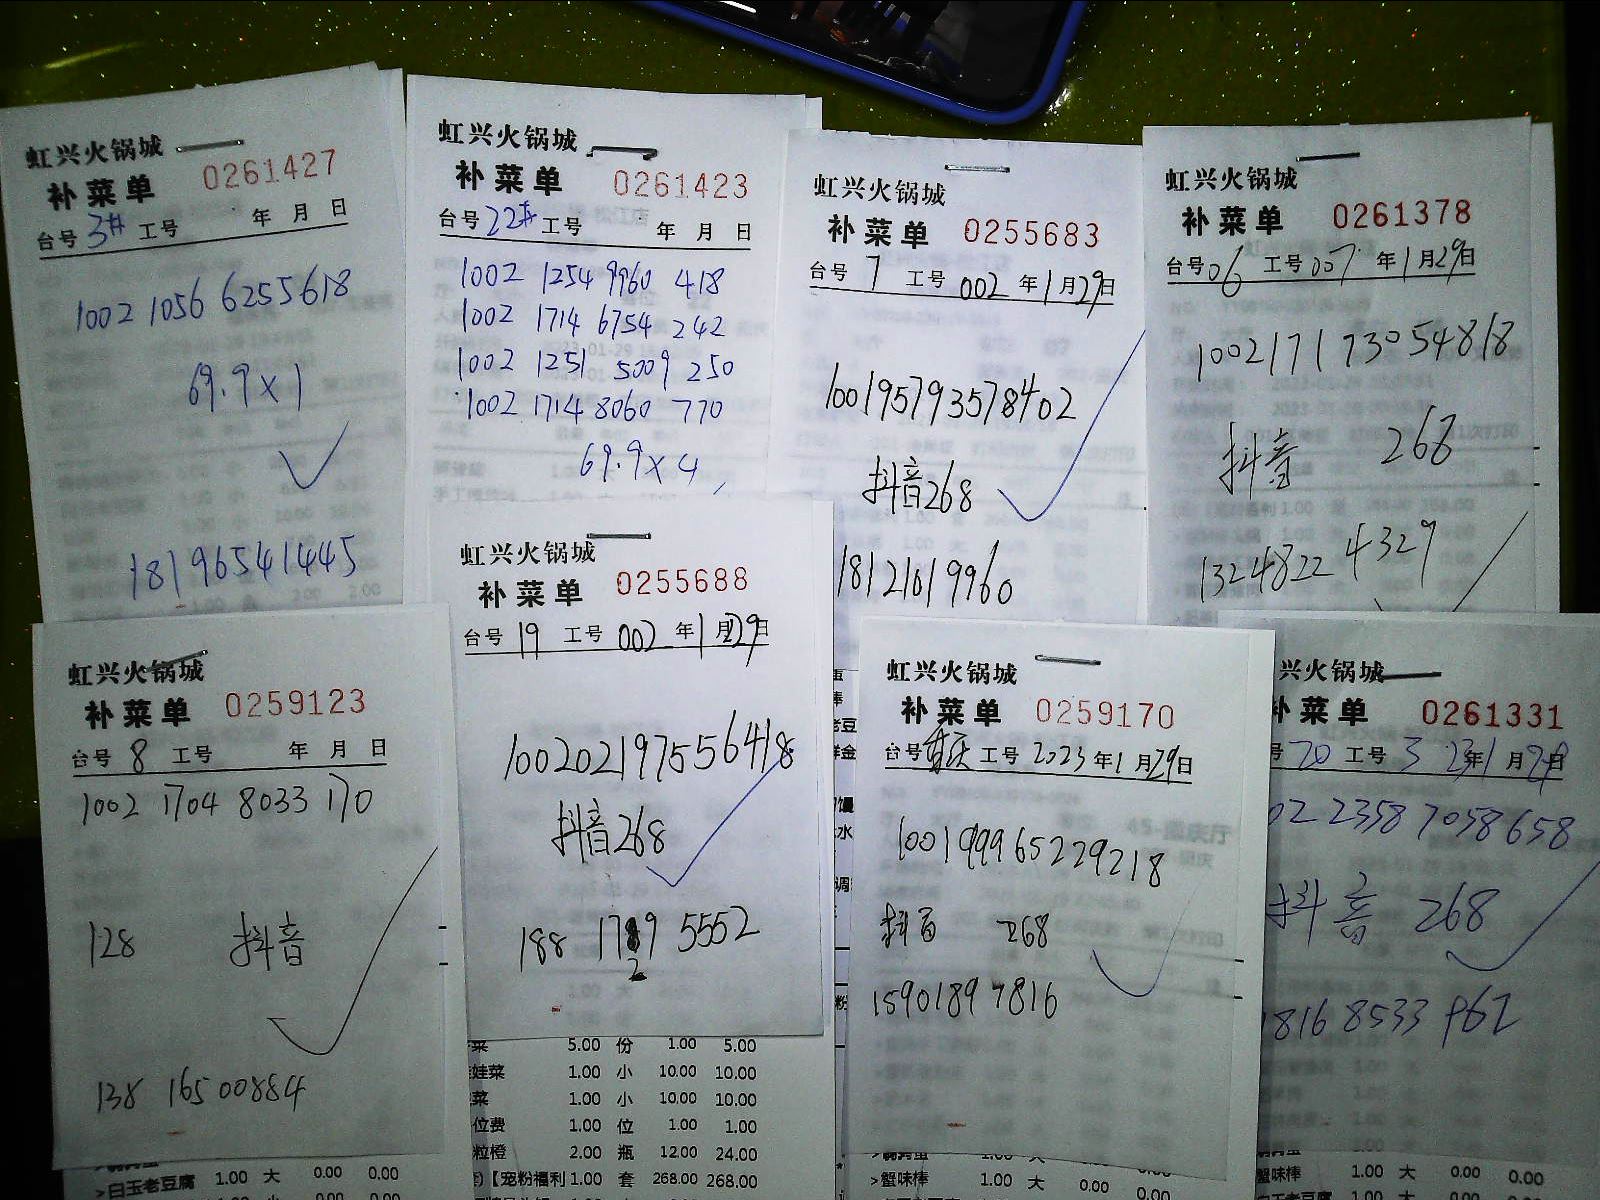 虹兴火锅城
补菜单 0261427
台号 3# 工号 年 月 日
1002 1056 6255618
69.9×1
18196541445
虹兴火锅城
补菜单 0261423
台号 22# 工号 年 月 日
1002 1254 9960 418
1002 1714 6754 242
1002 1251 5009 250
1002 1714 8060 770
69.9×4
虹兴火锅城
补菜单 0255683
台号 7 工号 002 年 1 月 29 日
100195793578402
抖音268
18121019960
虹兴火锅城
补菜单 0261378
台号 06 工号 007 年 1 月 29 日
100217173054818
抖音 268
13248224329
虹兴火锅城
补菜单 0259123
台号 8 工号 年 月 日
1002 1704 8033 170
128 抖音
138 16500884
虹兴火锅城
补菜单 0255688
台号 19 工号 002 年 1 月 29 日
100202197556418
抖音268
188 1729 5552
菜 5.00 份 1.00 5.00
娃菜 1.00 小 10.00 10.00
菜 1.00 小 10.00 10.00
位费 1.00 位 1.00 1.00
粒橙 2.00 瓶 12.00 24.00
【宠粉福利 1.00 套 268.00 268.00
虹兴火锅城
补菜单 0259170
台号 重庆 工号 2023 年 1 月 29 日
100199965229218
抖音 268
15901897816
>蟹味棒 1.00 大 0.00 0.00
兴火锅城
补菜单 0261331
号 20 工号 3 23 年 1 月 29 日
02 2358 7058658
抖音 268
8168533962
蟹味棒 1.00 大 0.00 0.00
>白玉老豆腐 1.00 大 0.00 0.00